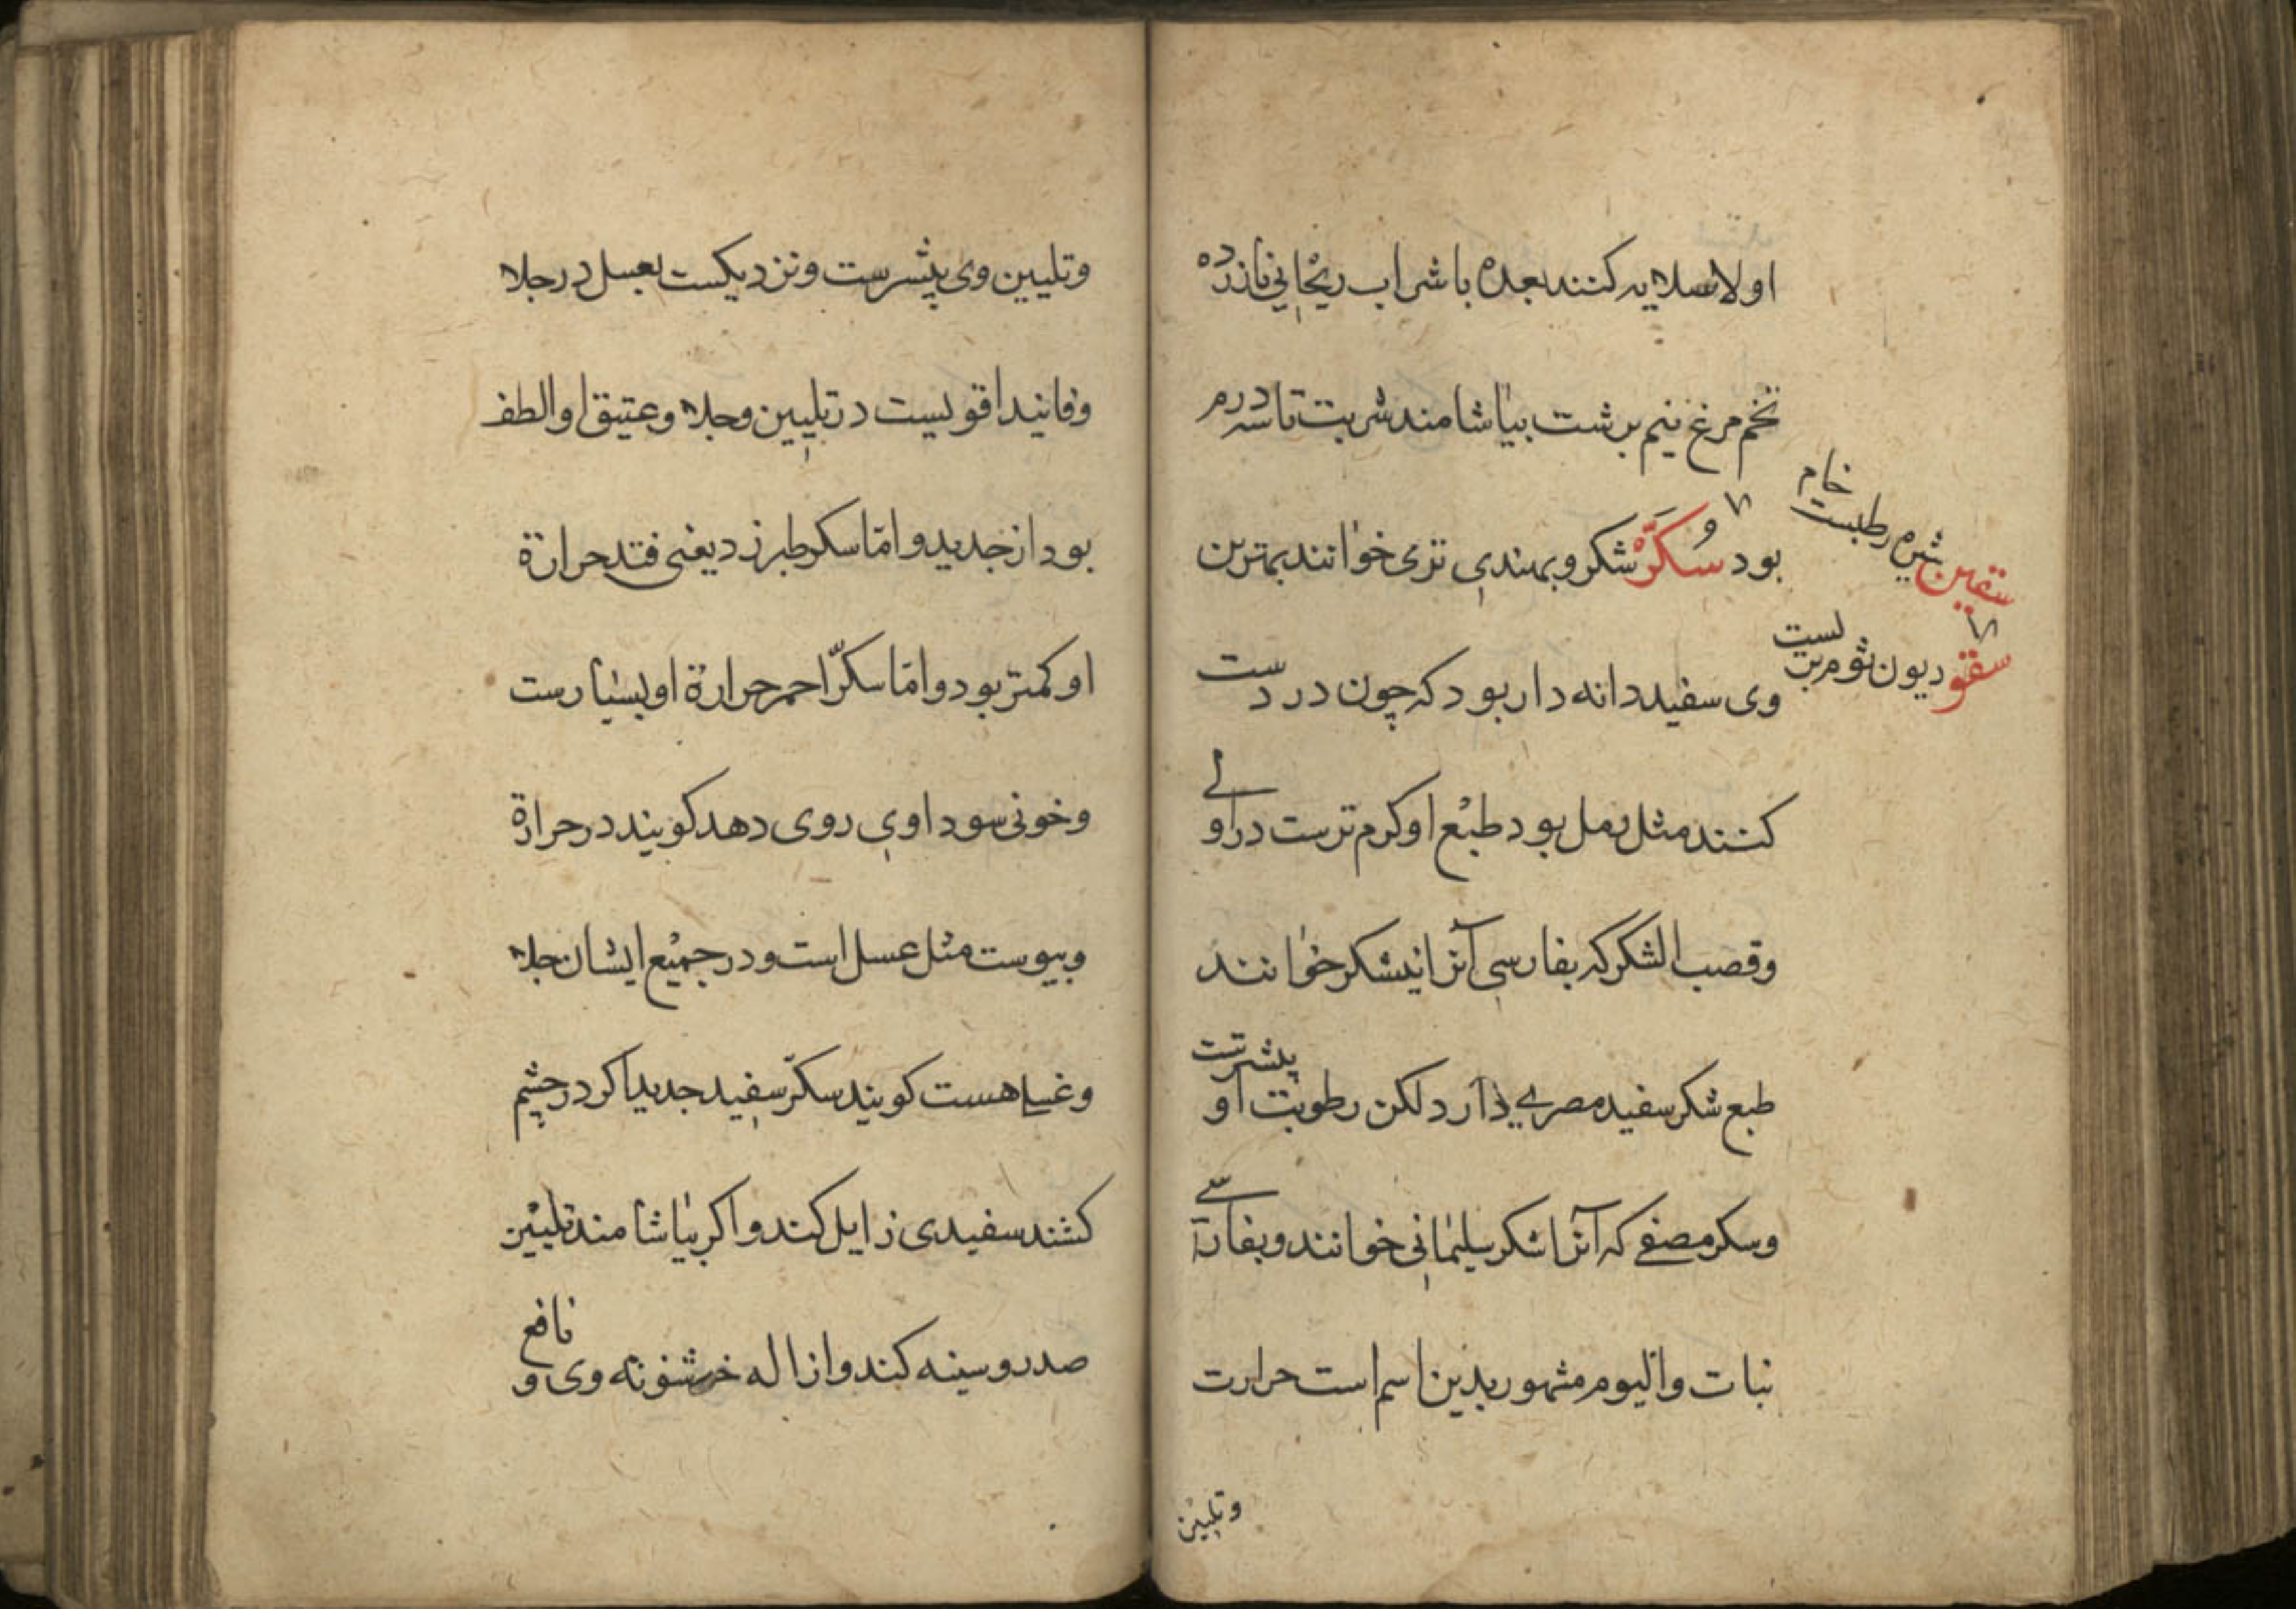 اولا سلایه کنند بعده با شراب ریحانی یا زرده
تخم مرغ نیم برشت بیاشامند شربت تا سه درم
بود سُکَّرْ شکر و بهندی تری خوانند بهترین
وی سفید دانه دار بود که چون در دست
کنند مثل رمل بود طبع او کرم ترست در اولے
وقصب الشکر که بفارسی آنرا نیشکر خوانند
طبع شکر سفید مصرے دارد لکن رطوبت او بیشترست
وسکر مصفے که آنرا شکر سلیمانی خوانند وبفارسے
نبات والیوم مشهور بدین اسم است حرارت
وتلیین
خام
شیره رطبست
سقودیون ثوم بریست
وتلیین وی بیشرست ونزدیکست بعسل در جلا
وفانید اقویست در تلیین وجلا وعتیق او الطف
بود از جدید واما سکر طبرزد یعنی قند حرارة
او کمتر بود واما سکّر احمر حرارة او بسیارست
وخونی سوداوی روی دهد کویند در حرارة
ویبوست مثل عسل است ودر جمیع ایشان جلا
وغسل هست کویند سکّر سفید جدید اکر در چشم
کشند سفیدی زایل کند واکر بیاشامند تلیین
صدر وسینه کند وازاله خشونه وی و نافع